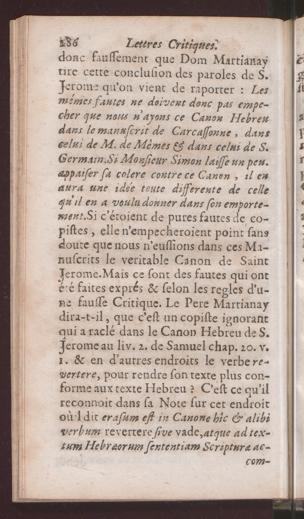 286 Lettres Critiques.
donc faussement que Dom Martianay
tire cette conclusion des paroles de S.
Jerome qu'on vient de raporter : Les
mêmes fautes ne doivent donc pas empe-
cher que nous n'ayons ce Canon Hebreu
dans le manuscrit de Carcassonne, dans
celui de M. de Mêmes & dans celui de S.
Germain.Si Monsieur Simon laisse un peu
appaiser sa colere contre ce Canon, il en
aura une idée toute differente de celle
qu'il en a voulu donner dans son emporte-
ment.Si c'étoient de pures fautes de co-
pistes, elle n'empecheroient point sans
doute que nous n'eussions dans ces Ma-
nuscrits le veritable Canon de Saint
Jerome.Mais ce sont des fautes qui ont
été faites exprés & selon les regles d'u-
ne fausse Critique. Le Pere Martianay
dira-t-il, que c'est un copiste ignorant
qui a raclé dans le Canon Hebreu de S.
Jerome au liv. 2. de Samuel chap. 20. v.
1. & en d'autres endroits le verbe re-
vertere, pour rendre son texte plus con-
forme aux texte Hebreu ? C'est ce qu'il
reconnoit dans sa Note sur cet endroit
où l dit erasum est in Canone hîc & alibi
verbum revertere sive vade, atque ad tex-
tum Hebræorum sententiam Scripturæ ac-
com-